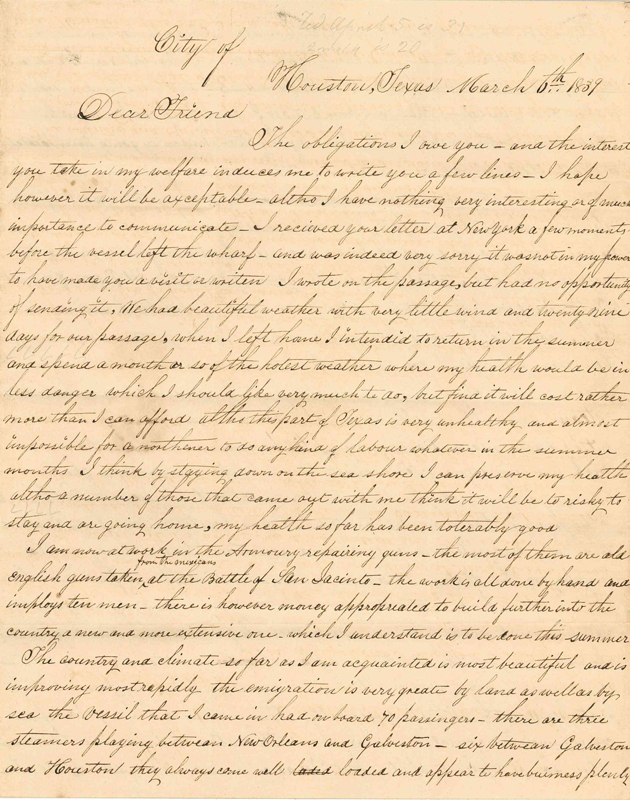 City of
Houston, Texas March 6th 1839
Dear Friend
The obligations I owe you – and the interest
you take in my welfare induces me to write you a few lines – I hope
however it will be axceptable – altho I have nothing very interesting or of much
importance to communicate – I recieved your letter at New York a few moments
before the vessel left the wharf – and was indeed very sorry it was not in my power
to have made you a visit or writen I wrote on the passage, but had no opportunity
of sending it, We had beautiful weather with very little wind and twenty nine
days for our passage, when I left home I intendid to return in the summer
and spend a month or so of the hotest weather where my health would be in
less danger which I should like very much to do, but find it will cost rather
more than I can afford altho this part of Texas is very unhealthy and almost
impossible for a northiner to do any kind of labour whatever in the summer
months I think by staying down on the sea shore I can preserve my health
altho a number of those that came out with me think it will be to risky to
stay and are going home, my health so far has been tolerably good
I am now at work in the Armoury repairing guns – the most of them are old
from the mexicans
english guns taken at the Battle of San Jacinto – the work is all done by hand and
imploys ten men – there is however money appropreated to build further into the
country a new and more extensive one which I understand is to be done this summer
The country and climate so far as I am acquainted is most beautiful and is
improving most rapidly the emigration is very greate by land as well as by
sea the Vessil that I came in had on board 70 passingers – there are three
steamers playing betwean New Orleans and Galveston – six betwean Galveston
and Houston they always come well loaded and appear to have buisness plenty